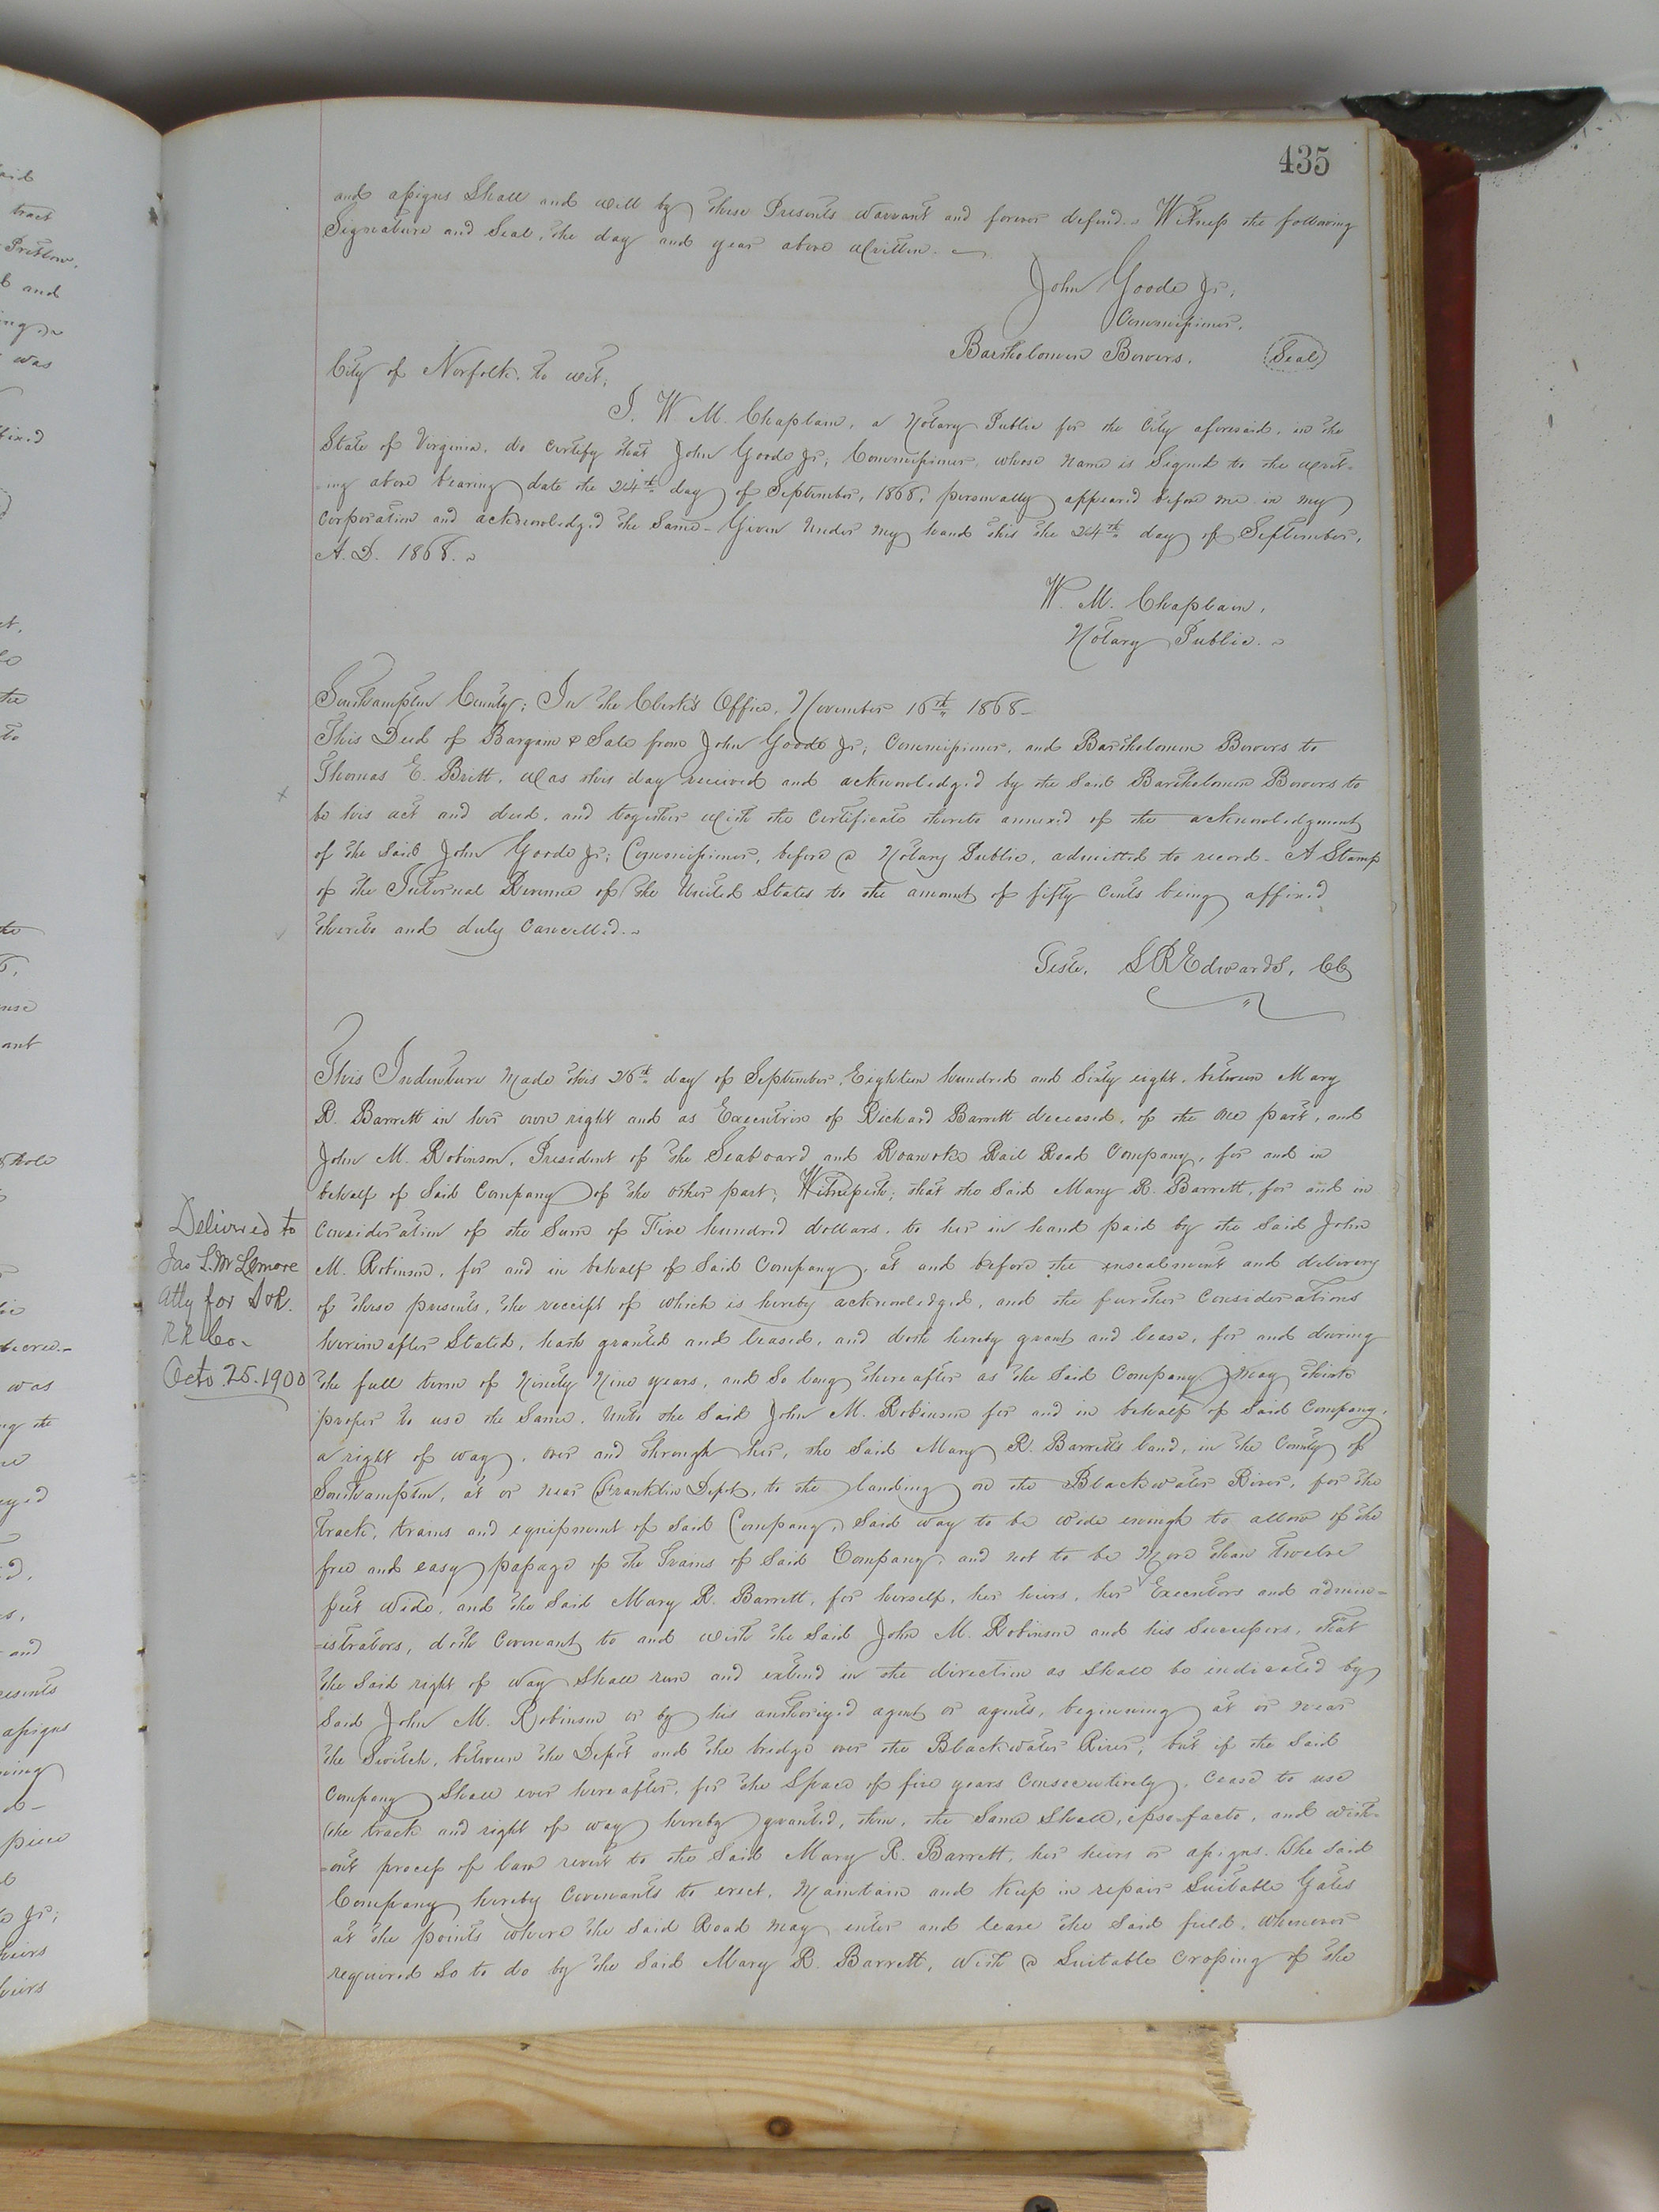 435
and assigns Shall and will by these Presents warrant and forever defend. Witness the following
Signature and Seal, the day and year above written.
John Goode Jr;
Commissioner.
Bartholomew Bowers. (Seal)
City of Norfolk, to wit;
I. W. M. Chaplain, a Notary Public for the City aforesaid, in the
State of Virginia, do certify that John Goode Jr; Commissioner, whose name is Signed to the writ-
-ing above bearing date the 24th day of September, 1868, personally appeared before me in my
Corporation and acknowledged the Same - Given under my hand this the 24th day of September,
A. D. 1868.
W. M. Chaplain,
Notary Public.
Southampton County; In the Clerk's Office, November 16th 1868-
This Deed of Bargain & Sale from John Goode Jr; Commissioner, and Bartholomew Bowers to
Thomas E. Britt, was this day received and acknowledged by the Said Bartholomew Bowers to
be his act and deed, and together with the Certificate thereto annexed of the acknowledgment
of the Said John Goode Jr; Commissioner, before a Notary Public, admitted to record - A Stamp
of the Internal Revenue of the United States to the amount of fifty Cents being affixed
thereto and duly Cancelled.
Teste, L R Edwards, CC
This Indenture Made this 26th day of September, Eighteen hundred and Sixty eight, between Mary
R. Barrett in her own right and as Executrix of Richard Barrett deceased, of the one part, and
John M. Robinson, President of the Seaboard and Roanoke Rail Road Company, for and in
behalf of Said Company of the other part; Witnesseth; that the Said Mary R. Barrett, for and in
Consideration of the Sum of Five hundred dollars, to her in hand paid by the Said John
M. Robinson, for and in behalf of Said Company, at and before the ensealment and delivery
of these presents, the receipt of which is hereby acknowledged, and the further Considerations
hereinafter Stated, hath granted and leased, and doth hereby grant and lease, for and during
the full term of Ninety Nine years, and So long thereafter as the Said Company may think
proper to use the Same, unto the Said John M. Robinson for and in behalf of Said Company,
a right of way, over and through her, the Said Mary R. Barrett's land, in the County of
Southampton, at or near Franklin Depot, to the landing on the Blackwater River, for the
track, trains and equipment of Said Company, Said way to be wide enough to allow of the
free and easy passage of the Trains of Said Company, and not to be More than twelve
feet wide, and the Said Mary R. Barrett, for herself, her heirs, her Executors and admin-
-istrators, doth Covenant to and with the Said John M. Robinson and his Successors, that
the Said right of Way Shall run and extend in the direction as Shall be indicated by
Said John M. Robinson or by his authorized agent or agents, beginning at or near
the Switch, between the Depot and the bridge over the Blackwater River; but if the Said
Company Shall ever hereafter, for the Space of five years Consecutively, Cease to use
the track and right of way hereby granted, then, the Same Shall, ipso facto, and with-
-out process of law revert to the Said Mary R. Barrett, her heirs or assigns. The Said
Company hereby Covenants to erect, Maintain and Keep in repair Suitable Gates
at the points where the Said Road may enter and leave the Said field, whenever
required So to do by the Said Mary R. Barrett, with a Suitable Crossing of the
Delivered to
Jas L. McLemore
Atty for S & R.
R R Co-
Octo. 25. 1900